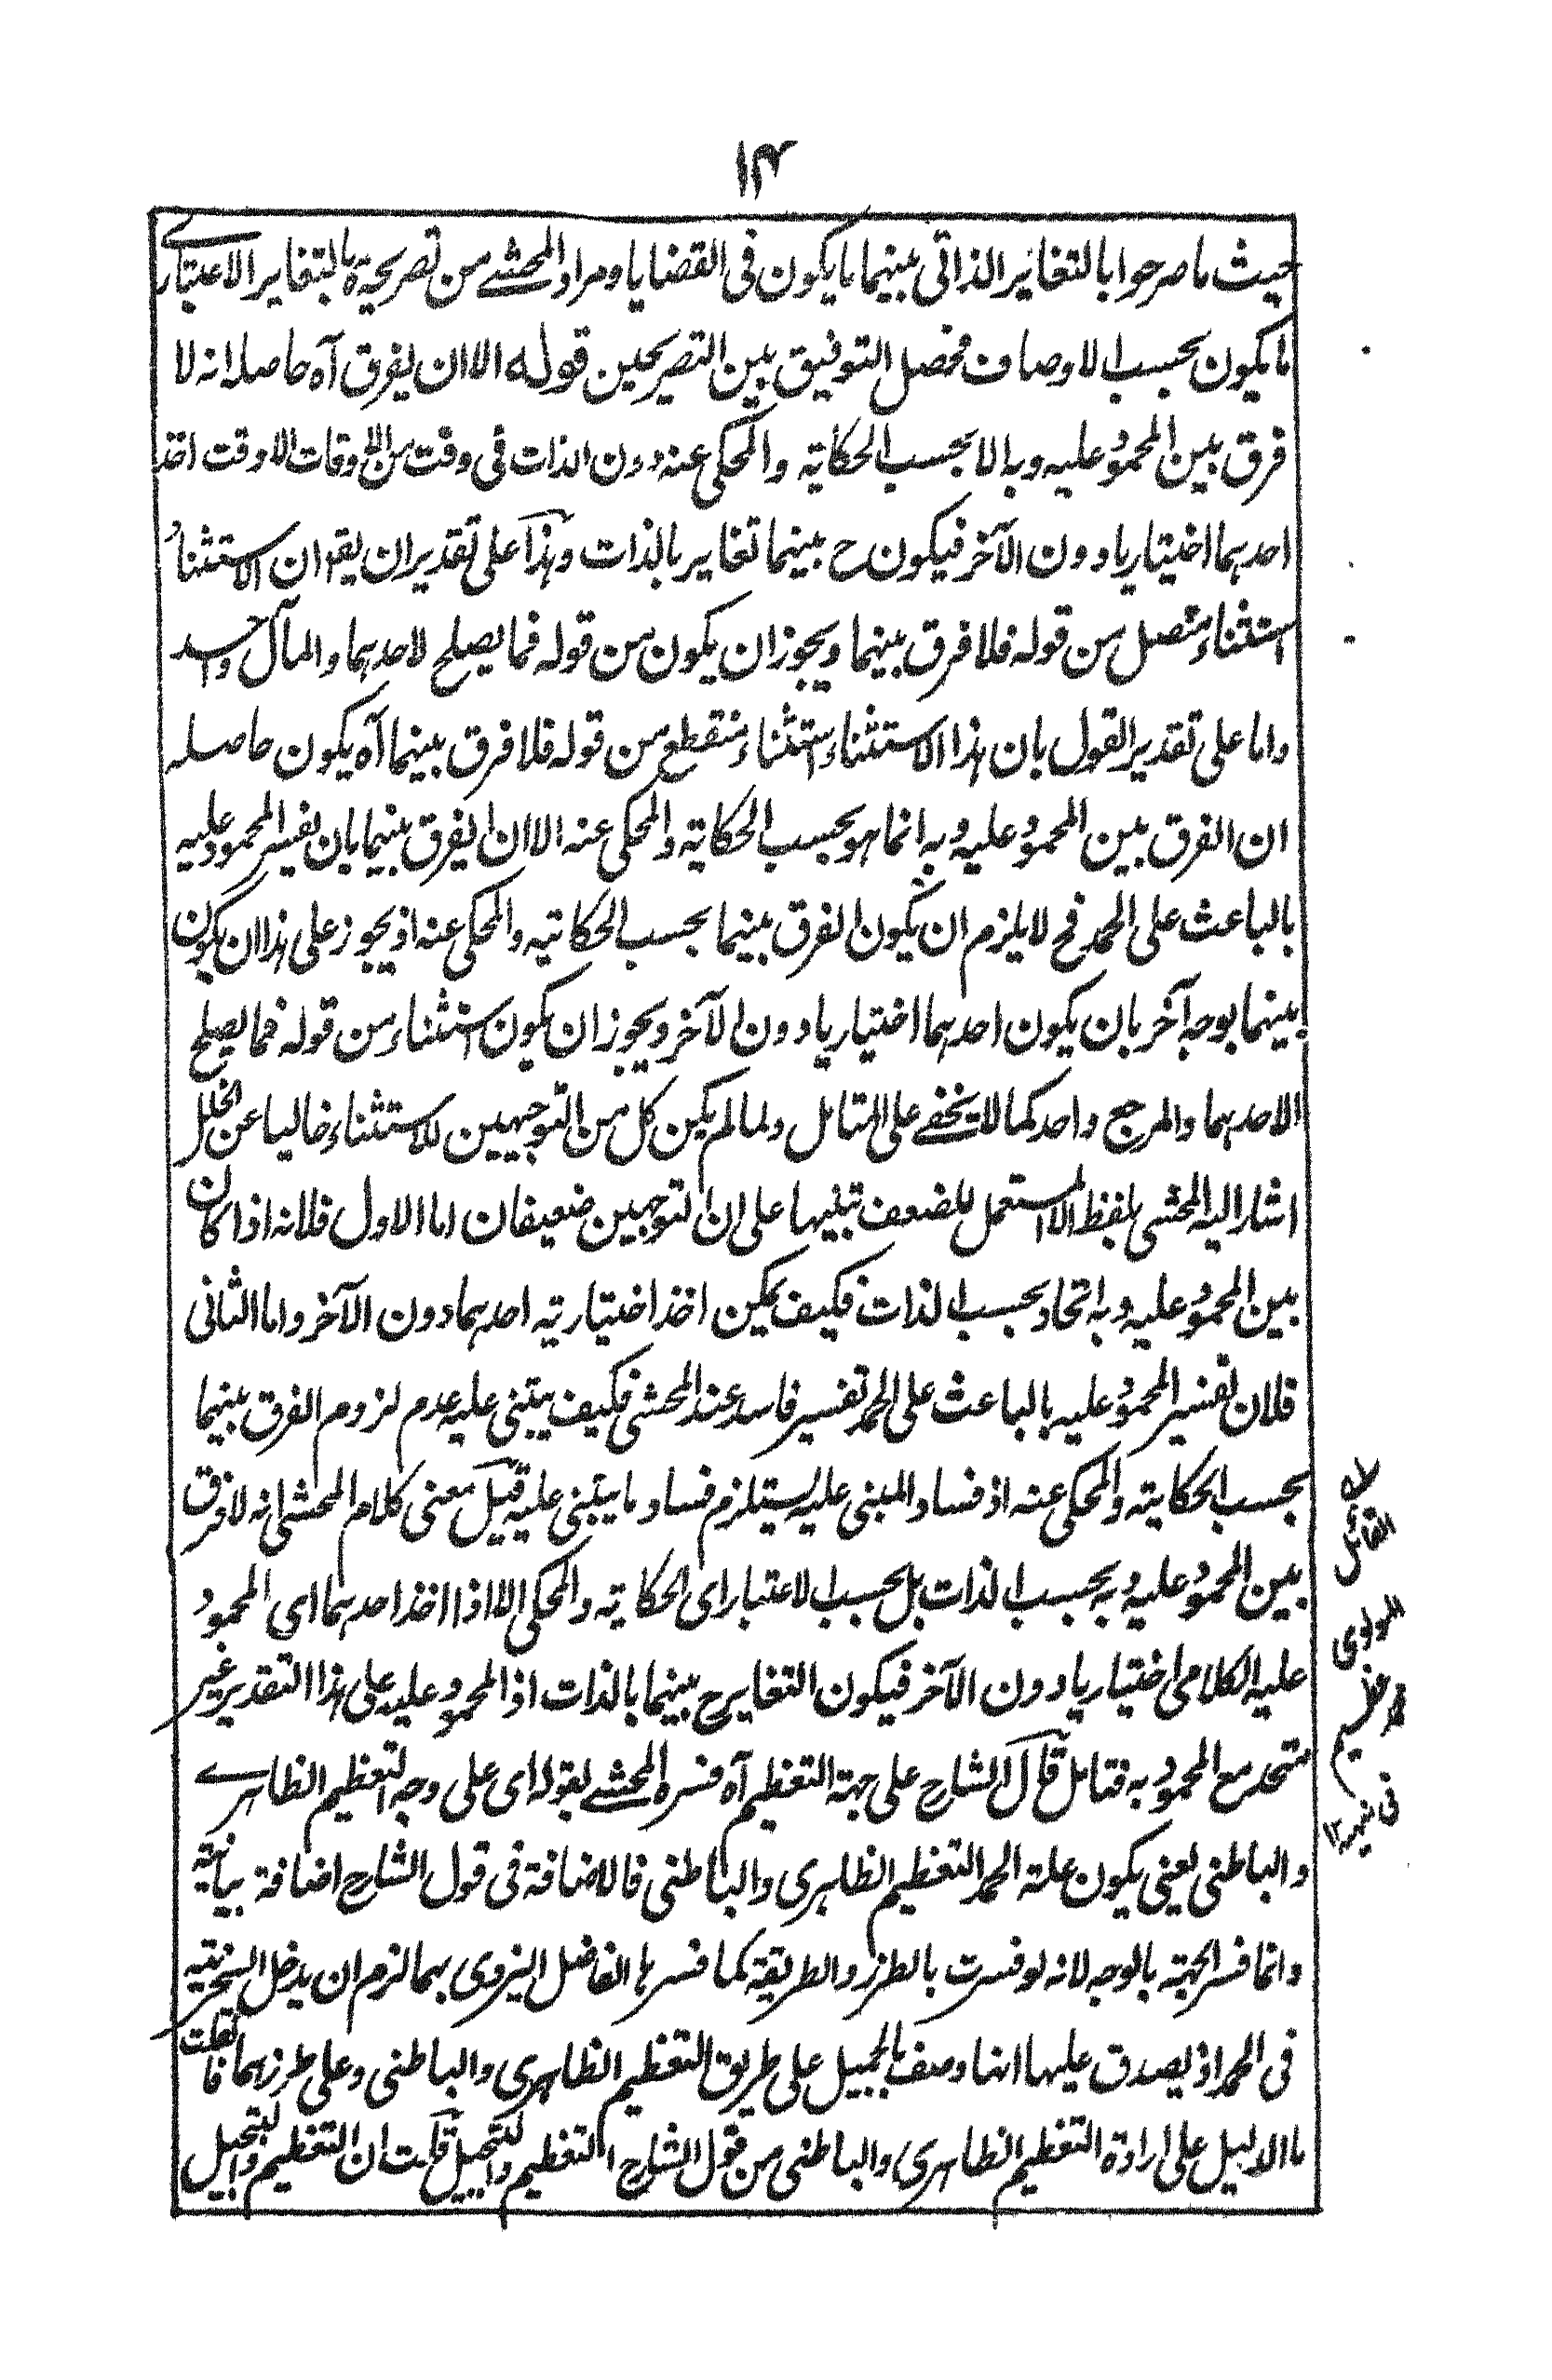 ۱۴
حيث ما صرحوا بالتغاير الذاتى بينهما ما يكون فى القضايا ومراد المحشے من تصريحية بالتغاير الاعتبارے
ما يكون بحسب الاوصاف فحصل التوفيق بين التصريحين قوله الا ان يفرق آه حاصله انه لا
فرق بين المحمود عليه وبه الا بحسب الحكاية والمحكى عنه دون الذات فى وقت من الاوقات الا وقت اخذ
احدهما اختياريا دون الآخر فيكون ح بينهما تغاير بالذات وهذا على تقدير ان يقو ان الاستثناء
استثناء متصل من قوله فلا فرق بينهما ويجوز ان يكون من قوله فما يصلح لاحدهما والمآل واحد
واما على تقدير القول بان هذا الاستثناء استثناء منقطع من قوله فلا فرق بينهما آه يكون حاصله
ان الفرق بين المحمود عليه وبه انما هو بحسب الحكاية والمحكى عنه الا ان يفرق بينهما بان يفسر المحمود عليه
بالباعث على الحمد فح لا يلزم ان يكون الفرق بينهما بحسب الحكاية والمحكى عنه اذ يجوز على هذا ان يكون
بينهما بوجه آخر بان يكون احدهما اختياريا دون الآخر ويجوز ان يكون استثناء من قوله فما يصلح
لاحدهما والمرجع واحد كما لا يخفے على المتامل ولما لم يكن كل من التوجيهين للاستثناء خاليا عن الخلل
اشار اليه المحشى بلفظ الا المستعمل للضعف تنبيها على ان التوجيهين ضعيفان اما الاول فلانه اذا كان
بين المحمود عليه وبه اتحاد بحسب الذات فكيف يمكن اخذ اختيارية احدهما دون الآخر واما الثانى
فلان تفسير المحمود عليه بالباعث على الحمد تفسير فاسد عند المحشى فكيف يبتنى عليه عدم لزوم الفرق بينهما
بحسب الحكاية والمحكى عنه اذ فساد المبنى عليه يستلزم فساد ما يبتنى عليه قيل معنى كلام المحشى انه لا فرق
بين المحمود عليه وبه بحسب الذات بل بحسب الاعتبار اى الحكاية والمحكى الا اذا اخذ احدهما اى المحمود
عليه الكلامى اختياريا دون الآخر فيكون التغاير ح بينهما بالذات اذ المحمود عليه على هذا التقدير غير
متحد مع المحمود به فتامل قال الشارح على جهة التعظيم آه فسره المحشے بقوله اى على وجه التعظيم الظاهرے
والباطنى يعنى يكون علة الحمد التعظيم الظاهرى والباطنى فالاضافة فى قول الشارح اضافة بيانية
وانما فسر الجهة بالوجه لانه لو فسرت بالطرز والطريقة كما فسرها الفاضل اليزدى بهما لزم ان يدخل السخرية
فى الحمد اذ يصدق عليها انها وصف بالجميل على طريق التعظيم الظاهرى والباطنى وعلى طرزهما فانقلت
ما الدليل على ارادة التعظيم الظاهرى والباطنى من قول الشارح التعظيم والتبجيل قلت ان التعظيم والتبجيل
القائل
المولوى